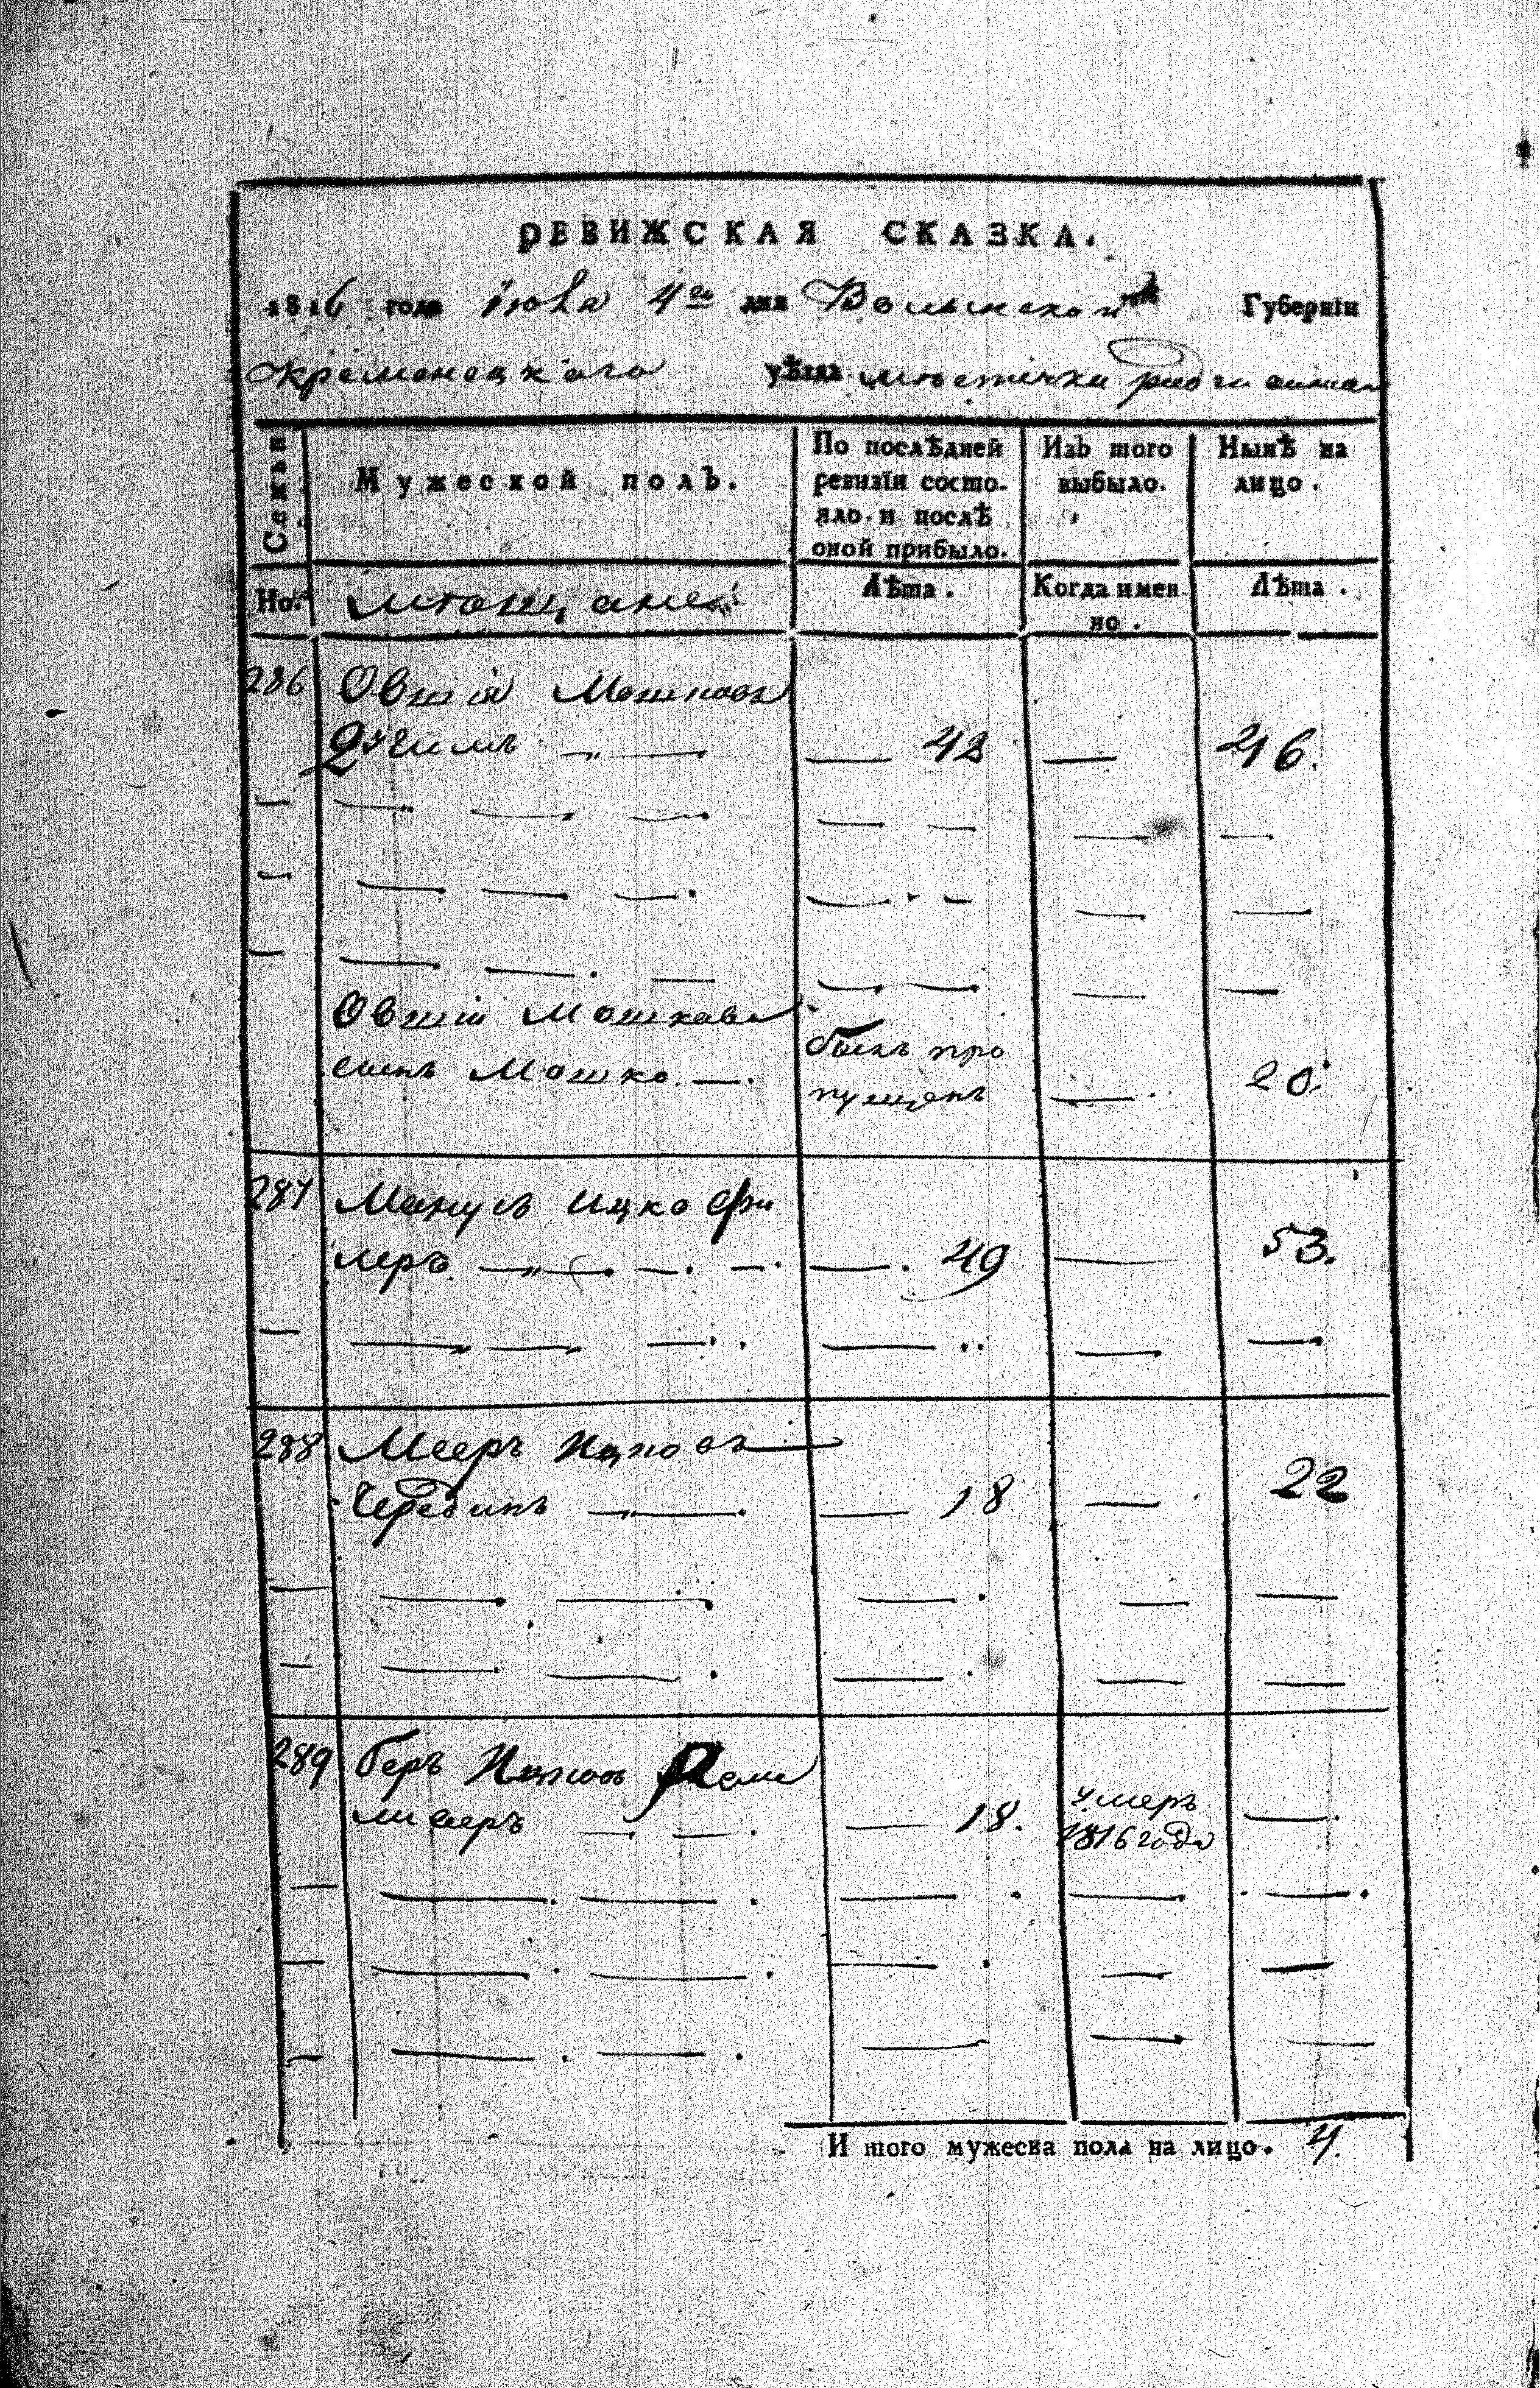 РЕВИЖСКАЯ СКАЗКА.
1816 года Июля 4го дня Волынской Губерніи
Кременецкаго уѣзда мѣстечка
Семьи
Мужеской полъ.
По послѣдней ревизіи состояло и послѣ оной прибыло.
Изъ того выбыло.
Нынѣ на лицо.
Но.
мѣщане
Лѣта.
Когда имен-
но.
Лѣта.
286 Овшія Мошковъ
— 42 — 46.
Овшіи Мошкова
сынъ Мошко — былъ про
пущенъ — 20.
287 Манусъ Ицко Фи
леръ — 49 — 53.
288 Мееръ Ицковъ
— 18 — 22
289 Беръ Ицковъ
— 18. умеръ
1816 года —
И того мужеска пола на лицо. 4.